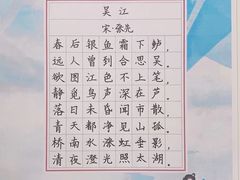 吴江
宋·张先
春后银鱼霜下鲈，
远人曾到合思吴。
欲图江色不上笔，
静觅鸟声深在芦。
落日未昏闻市散，
青天都净见山孤。
桥南水涨虹垂影，
清夜澄光照太湖。